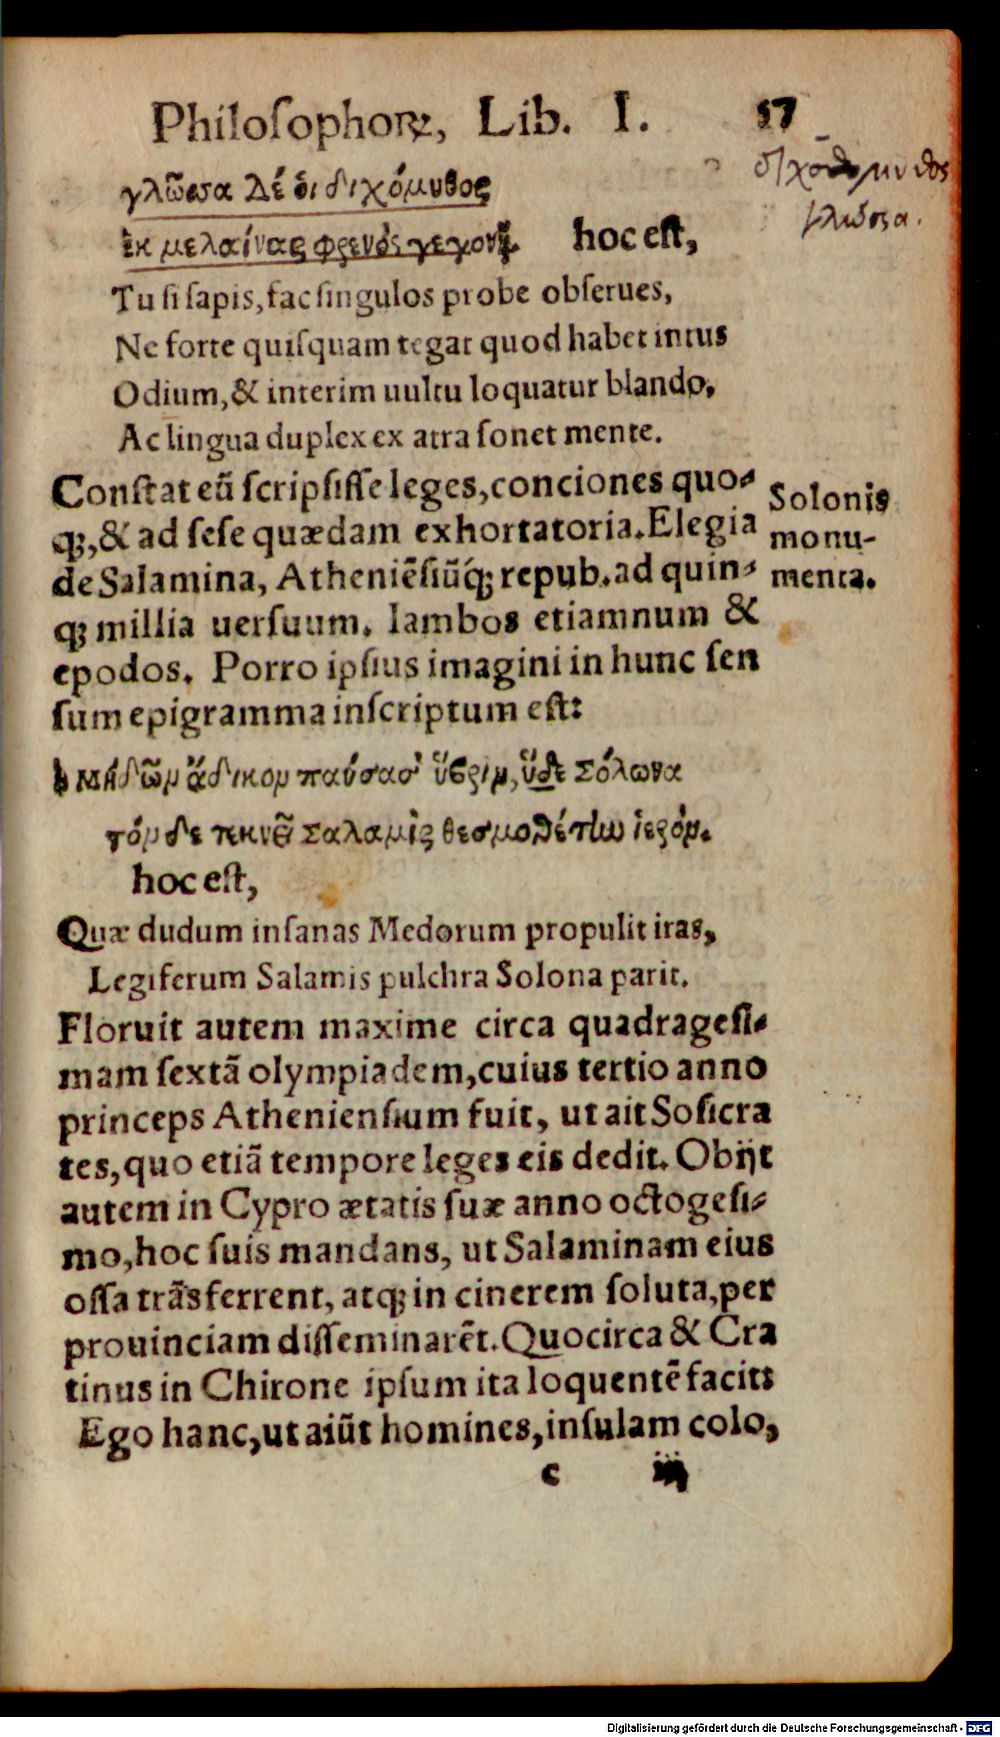 Philoſophoꝝ, Lib. I. 57
γλῶσσα δέ οἱ διχόμυθος
ἐκ μελαίνας φρενὸς γεγονῇ. hoc eſt,
διχόμυθος
γλῶσσα.
Tu ſi ſapis, fac ſingulos probe obſerues,
Ne forte quiſquam tegat quod habet intus
Odium, & interim uultu loquatur blando,
Ac lingua duplex ex atra ſonet mente.
Conſtat eũ ſcripſiſſe leges, conciones quo⸗
qꝫ, & ad ſeſe quædam exhortatoria. Elegia
de Salamina, Atheniẽſiũq́ꝫ repub. ad quin⸗
qꝫ millia uerſuum. Iambos etiamnum &
epodos. Porro ipſius imagini in hunc ſen
ſum epigramma inſcriptum eſt:
Solonis
monu-
menta.
ἡ Μήδων ἄδικον παύσασ' ὕβριν, ἥδε Σόλωνα
τόνδε τεκνοῖ Σαλαμὶς θεσμοθέτην ἱερόν.
hoc eſt,
Quæ dudum inſanas Medorum propulit iras,
Legiferum Salamis pulchra Solona parit.
Floruit autem maxime circa quadrageſi⸗
mam ſextã olympiadem, cuius tertio anno
princeps Athenienſium fuit, ut ait Soſicra
tes, quo etiã tempore leges eis dedit. Obijt
autem in Cypro ætatis ſuæ anno octogeſi⸗
mo, hoc ſuis mandans, ut Salaminam eius
oſſa trãsferrent, atqꝫ in cinerem ſoluta, per
prouinciam diſſeminarẽt. Quocirca & Cra
tinus in Chirone ipſum ita loquentẽ facit:
Ego hanc, ut aiũt homines, inſulam colo,
c iij
Digitalisierung gefördert durch die Deutsche Forschungsgemeinschaft - DFG